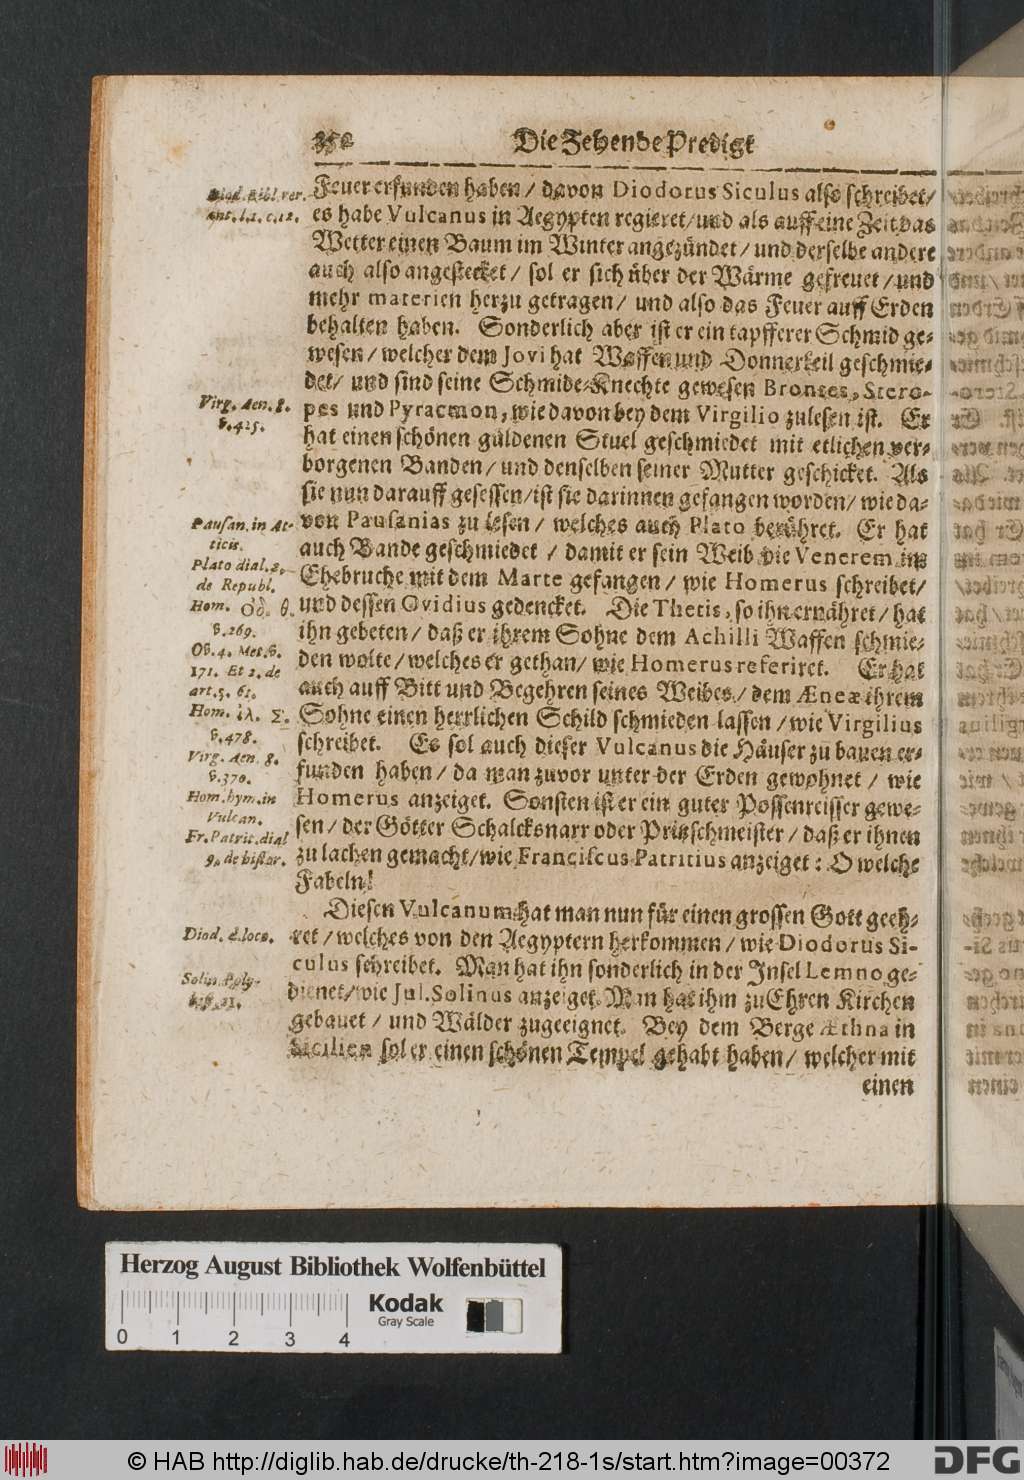 352 Die Zehende Predigt
Feuer erfunden haben / davon Diodorus Siculus also schreibet /
es habe Vulcanus in Aegypten regieret / und als auff eine Zeit das
Wetter einen Baum im Winter angezündet / und derselbe andere
auch also angestecket / sol er sich über der Wärme gefreuet / und
mehr materien herzu getragen / und also das Feuer auff Erden
behalten haben. Sonderlich aber ist er ein tapfferer Schmid ge-
wesen / welcher dem Jovi hat Waffen und Donnerkeil geschmie-
det / und sind seine Schmide-Knechte gewesen Brontes, Stero-
pes und Pyracmon, wie davon bey dem Virgilio zulesen ist. Er
hat einen schönen güldenen Stuel geschmiedet mit etlichen ver-
borgenen Banden / und denselben seiner Mutter geschicket. Als
sie nun darauff gesessen / ist sie darinnen gefangen worden / wie da-
von Pausanias zu lesen / welches auch Plato berühret. Er hat
auch Bande geschmiedet / damit er sein Weib die Venerem im
Ehebruche mit dem Marte gefangen / wie Homerus schreibet /
und dessen Ovidius gedencket. Die Thetis, so ihn ernähret / hat
ihn gebeten / daß er ihrem Sohne dem Achilli Waffen schmie-
den wolte / welches er gethan / wie Homerus referiret. Er hat
auch auff Bitt und Begehren seines Weibes / dem Æneæ ihrem
Sohne einen herrlichen Schild schmieden lassen / wie Virgilius
schreibet. Es sol auch dieser Vulcanus die Häuser zu bauen er-
funden haben / da man zuvor unter der Erden gewohnet / wie
Homerus anzeiget. Sonsten ist er ein guter Possenreisser gewe-
sen / der Götter Schalcksnarr oder Pritzschmeister / daß er ihnen
zu lachen gemacht / wie Franciscus Patritius anzeiget: O welche
Fabeln!
Diesen Vulcanum hat man nun für einen grossen Gott geeh-
ret / welches von den Aegyptern herkommen / wie Diodorus Si-
culus schreibet. Man hat ihn sonderlich in der Insel Lemno ge-
dienet / wie Jul. Solinus anzeiget. Man hat ihm zu Ehren Kirchen
gebauet / und Wälder zugeeignet. Bey dem Berge Æthna in
Sicilien sol er einen schönen Tempel gehabt haben / welcher mit
einen
Diod. Bibl. rer.
ant. l. 1. c. 12.
Virg. Aen. 8.
v. 425.
Pausan. in At-
ticis.
Plato dial. 2.
de Republ.
Hom. Οδ. θ.
v. 269.
Ov. 4. Met. v.
171. Et 2. de
art. v. 61.
Hom. ἰλ. Σ.
v. 478.
Virg. Aen. 8.
v. 370.
Hom. hym. in
Vulcan.
Fr. Patrit. dial
9. de histor.
Diod. d. loco.
Solin. Poly-
hist.
Herzog August Bibliothek Wolfenbüttel
Kodak
Gray Scale
0 1 2 3 4
© HAB http://diglib.hab.de/drucke/th-218-1s/start.htm?image=00372
DFG